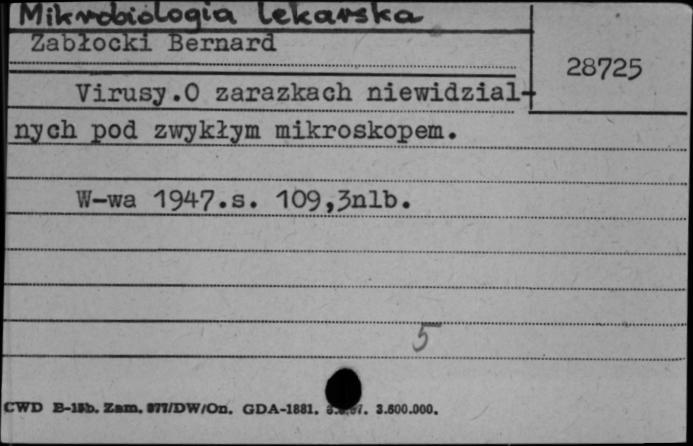 Mikrobiologia lekarska
Zabłocki Bernard
28725
Virusy.O zarazkach niewidzial-
nych pod zwykłym mikroskopem.
W-wa 1947.s. 109,3nlb.
5
CWD B-15b. Zam. 977/DW/On. GDA-1881. 3.600.000.